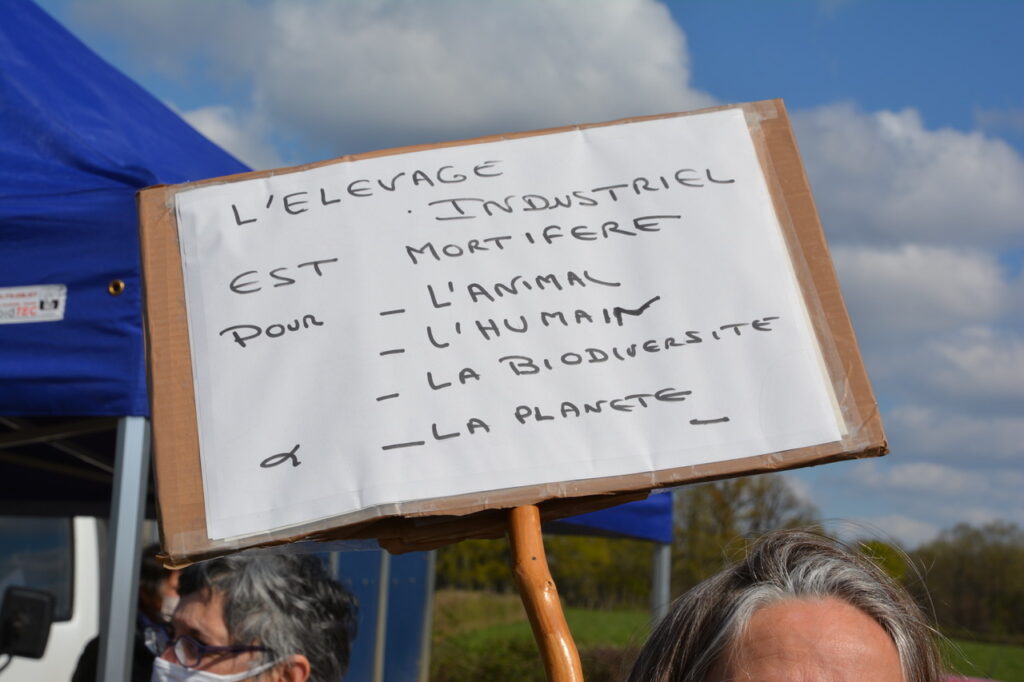 L'ELEVAGE
INDUSTRIEL
EST MORTIFERE
POUR _ L'ANIMAL
_ L'HUMAIN
_ LA BIODIVERSITE
& _ LA PLANETE _